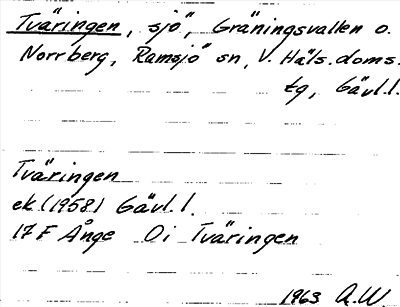 Tväringen, sjö, Gräningsvallen o.
Norrberg, Ramsjö sn, V. Häls. doms.
tg, Gävl. l.
Tväringen
ek. (1958) Gävl. l.
17 F Ånge 0 i Tväringen
1963 A.W.